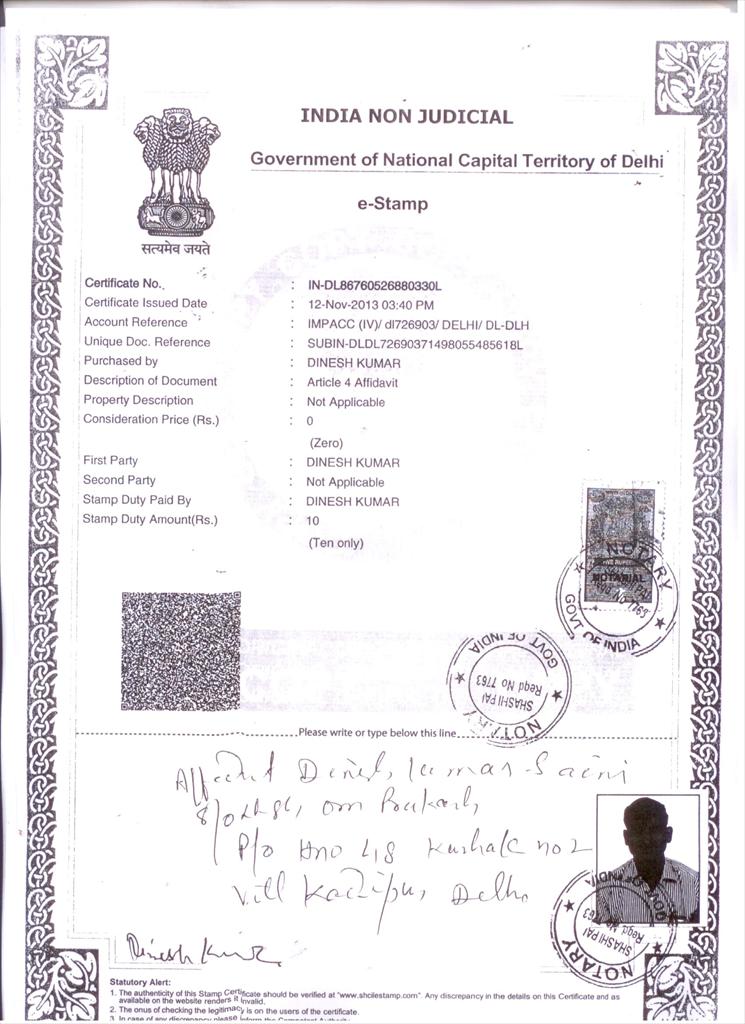 INDIA NON JUDICIAL
Government of National Capital Territory of Delhi
e-Stamp
सत्यमेव जयते
Certificate No. : IN-DL86760526880330L
Certificate Issued Date : 12-Nov-2013 03:40 PM
Account Reference : IMPACC (IV)/ dl726903/ DELHI/ DL-DLH
Unique Doc. Reference : SUBIN-DLDL72690371498055485618L
Purchased by : DINESH KUMAR
Description of Document : Article 4 Affidavit
Property Description : Not Applicable
Consideration Price (Rs.) : 0
(Zero)
First Party : DINESH KUMAR
Second Party : Not Applicable
Stamp Duty Paid By : DINESH KUMAR
Stamp Duty Amount(Rs.) : 10
(Ten only)
FIVE RUPEES
NOTARIAL
NOTARY
Regd No 7763
GOVT OF INDIA
GOVT OF INDIA
SHASHI PAL
Regd No 7763
NOTARY
Please write or type below this line
Dinesh Kumar Saini
om Prakash
HNO 418 Kushak no 2
Vill Kadipur, Delhi
GOVT OF INDIA
SHASHI PAL
Regd No 7763
NOTARY
Dinesh Kumar
Statutory Alert:
1. The authenticity of this Stamp Certificate should be verified at "www.shcilestamp.com". Any discrepancy in the details on this Certificate and as
available on the website renders it invalid.
2. The onus of checking the legitimacy is on the users of the certificate.
3. In case of any discrepancy please inform the Competent Authority.